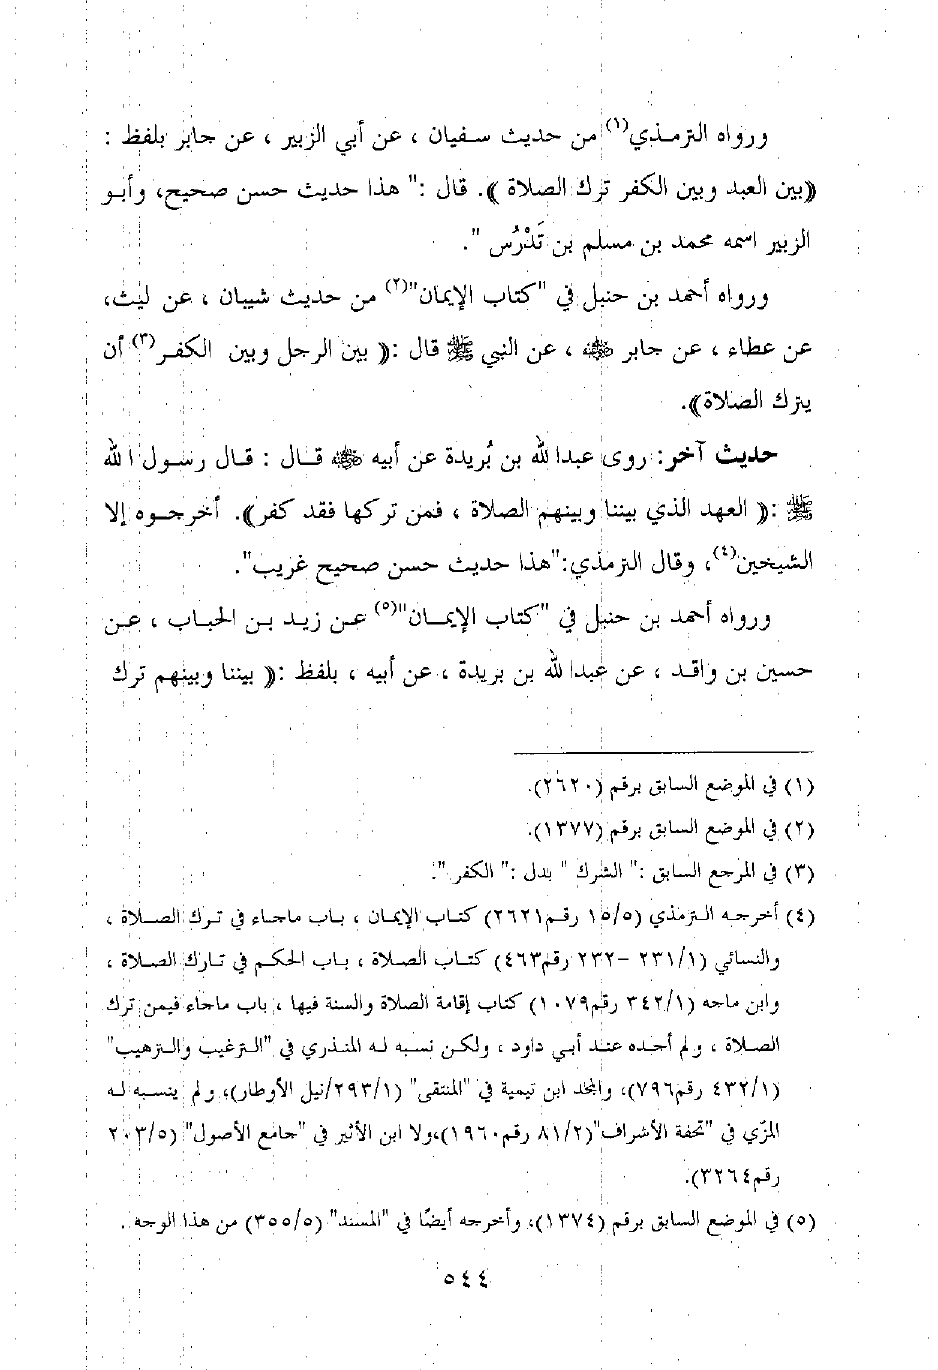 ورواه الترمذي(١) من حديث سفيان ، عن أبي الزبير ، عن جابر بلفظ :
((بين العبد وبين الكفر ترك الصلاة )). قال :" هذا حديث حسن صحيح، وأبو
الزبير اسمه محمد بن مسلم بن تَدْرُس ".
ورواه أحمد بن حنبل في "كتاب الإيمان"(٢) من حديث شيبان ، عن ليث،
عن عطاء ، عن جابر ﷺ ، عن النبي ﷺ قال :(( بين الرجل وبين الكفر(٣) أن
يترك الصلاة)).
حديث آخر: روى عبدالله بن بُريدة عن أبيه ﷺ قال : قال رسول الله
ﷺ :(( العهد الذي بيننا وبينهم الصلاة ، فمن تركها فقد كفر)). أخرجوه إلا
الشيخين(٤)، وقال الترمذي:"هذا حديث حسن صحيح غريب".
ورواه أحمد بن حنبل في "كتاب الإيمان"(٥) عن زيد بن الحباب ، عن
حسين بن واقد ، عن عبدالله بن بريدة ، عن أبيه ، بلفظ :(( بيننا وبينهم ترك
(١) في الموضع السابق برقم (٢٦٢٠).
(٢) في الموضع السابق برقم (١٣٧٧).
(٣) في المرجع السابق :" الشرك " بدل :" الكفر ".
(٤) أخرجه الترمذي (١٥/٥ رقم٢٦٢١) كتاب الإيمان ، باب ماجاء في ترك الصلاة ،
والنسائي (٢٣١/١ -٢٣٢ رقم٤٦٣) كتاب الصلاة ، باب الحكم في تارك الصلاة ،
وابن ماجه (٣٤٢/١ رقم١٠٧٩) كتاب إقامة الصلاة والسنة فيها ، باب ماجاء فيمن ترك
الصلاة ، ولم أجده عند أبي داود ، ولكن نسبه له المنذري في "الترغيب والترهيب"
(٤٣٢/١ رقم٧٩٦)، والمجد ابن تيمية في "المنتقى" (٢٩٣/١/نيل الأوطار)، ولم ينسبه له
المزّي في "تحفة الأشراف"(٨١/٢ رقم١٩٦٠)،ولا ابن الأثير في "جامع الأصول" (٢٠٣/٥
رقم٣٢٦٤).
(٥) في الموضع السابق برقم (١٣٧٤)، وأخرجه أيضًا في "المسند" (٣٥٥/٥) من هذا الوجه .
٥٤٤